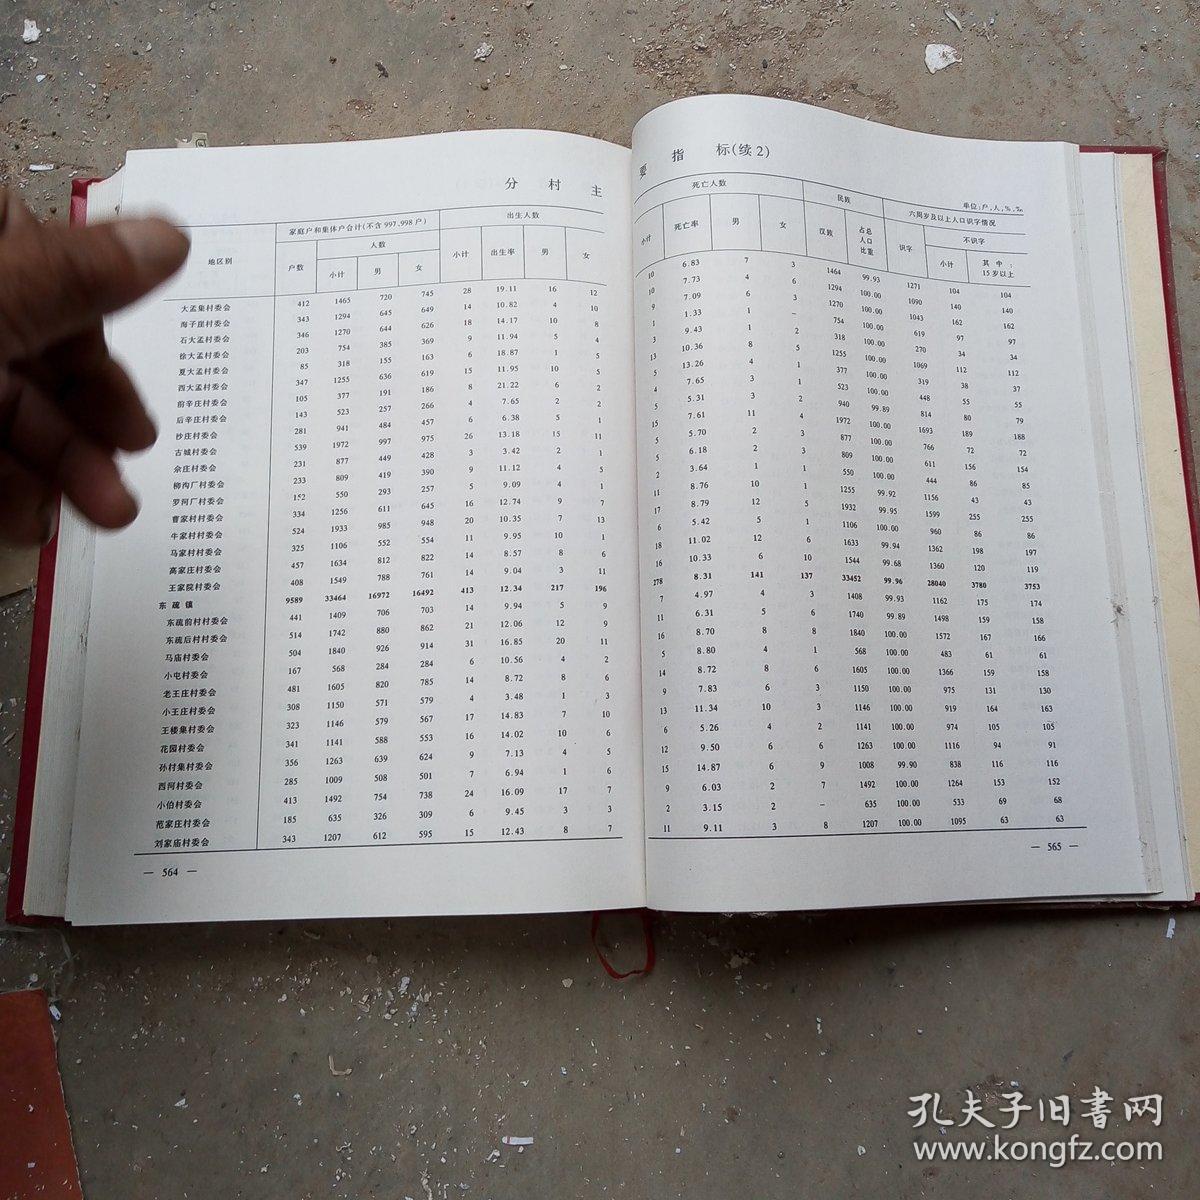 分 村 主
地区别
家庭户和集体户合计(不含 997、998 户)
出生人数
户数
人数
小计
出生率
男
女
小计
男
女
大孟集村委会 412 1465 720 745 28 19.11 16 12
海子崖村委会 343 1294 645 649 14 10.82 4 10
石大孟村委会 346 1270 644 626 18 14.17 10 8
徐大孟村委会 203 754 385 369 9 11.94 5 4
夏大孟村委会 85 318 155 163 6 18.87 1 5
西大孟村委会 347 1255 636 619 15 11.95 10 5
前辛庄村委会 105 377 191 186 8 21.22 6 2
后辛庄村委会 143 523 257 266 4 7.65 2 2
杪庄村委会 281 941 484 457 6 6.38 5 1
古城村委会 539 1972 997 975 26 13.18 15 11
佘庄村委会 231 877 449 428 3 3.42 2 1
柳沟厂村委会 233 809 419 390 9 11.12 4 5
罗河厂村委会 152 550 293 257 5 9.09 4 1
曹家村村委会 334 1256 611 645 16 12.74 9 7
牛家村村委会 524 1933 985 948 20 10.35 7 13
马家村村委会 325 1106 552 554 11 9.95 10 1
高家庄村委会 457 1634 812 822 14 8.57 8 6
王家院村委会 408 1549 788 761 14 9.04 3 11
东 疏 镇 9589 33464 16972 16492 413 12.34 217 196
东疏前村村委会 441 1409 706 703 14 9.94 5 9
东疏后村村委会 514 1742 880 862 21 12.06 12 9
马庙村委会 504 1840 926 914 31 16.85 20 11
小屯村委会 167 568 284 284 6 10.56 4 2
老王庄村委会 481 1605 820 785 14 8.72 8 6
小王庄村委会 308 1150 571 579 4 3.48 1 3
王楼集村委会 323 1146 579 567 17 14.83 7 10
花园村委会 341 1141 588 553 16 14.02 10 6
孙村集村委会 356 1263 639 624 9 7.13 4 5
西河村委会 285 1009 508 501 7 6.94 1 6
小伯村委会 413 1492 754 738 24 16.09 17 7
范家庄村委会 185 635 326 309 6 9.45 3 3
刘家庙村委会 343 1207 612 595 15 12.43 8 7
— 564 —
要 指 标(续 2)
单位:户,人,%,‰
死亡人数
民族
六周岁及以上人口识字情况
小计
死亡率
男
女
汉族
占总
人口
比重
识字
不识字
小计
其 中:
15 岁以上
10 6.83 7 3 1464 99.93 1271 104 104
10 7.73 4 6 1294 100.00 1090 140 140
9 7.09 6 3 1270 100.00 1043 162 162
1 1.33 1 – 754 100.00 619 97 97
3 9.43 1 2 318 100.00 270 34 34
13 10.36 8 5 1255 100.00 1069 112 112
5 13.26 4 1 377 100.00 319 38 37
4 7.65 3 1 523 100.00 448 55 55
5 5.31 3 2 940 99.89 814 80 79
15 7.61 11 4 1972 100.00 1693 189 188
5 5.70 2 3 877 100.00 766 72 72
5 6.18 2 3 809 100.00 611 156 154
2 3.64 1 1 550 100.00 444 86 85
11 8.76 10 1 1255 99.92 1156 43 43
17 8.79 12 5 1932 99.95 1599 255 255
6 5.42 5 1 1106 100.00 960 86 86
18 11.02 12 6 1633 99.94 1362 198 197
16 10.33 6 10 1544 99.68 1360 120 119
278 8.31 141 137 33452 99.96 28040 3780 3753
7 4.97 4 3 1408 99.93 1162 175 174
11 6.31 5 6 1740 99.89 1498 159 158
16 8.70 8 8 1840 100.00 1572 167 166
5 8.80 4 1 568 100.00 483 61 61
14 8.72 8 6 1605 100.00 1366 159 158
9 7.83 6 3 1150 100.00 975 131 130
13 11.34 10 3 1146 100.00 919 164 163
6 5.26 4 2 1141 100.00 974 105 105
12 9.50 6 6 1263 100.00 1116 94 91
15 14.87 6 9 1008 99.90 838 116 116
9 6.03 2 7 1492 100.00 1264 153 152
2 3.15 2 – 635 100.00 533 69 68
11 9.11 3 8 1207 100.00 1095 63 63
— 565 —
孔夫子旧書网
www.kongfz.com